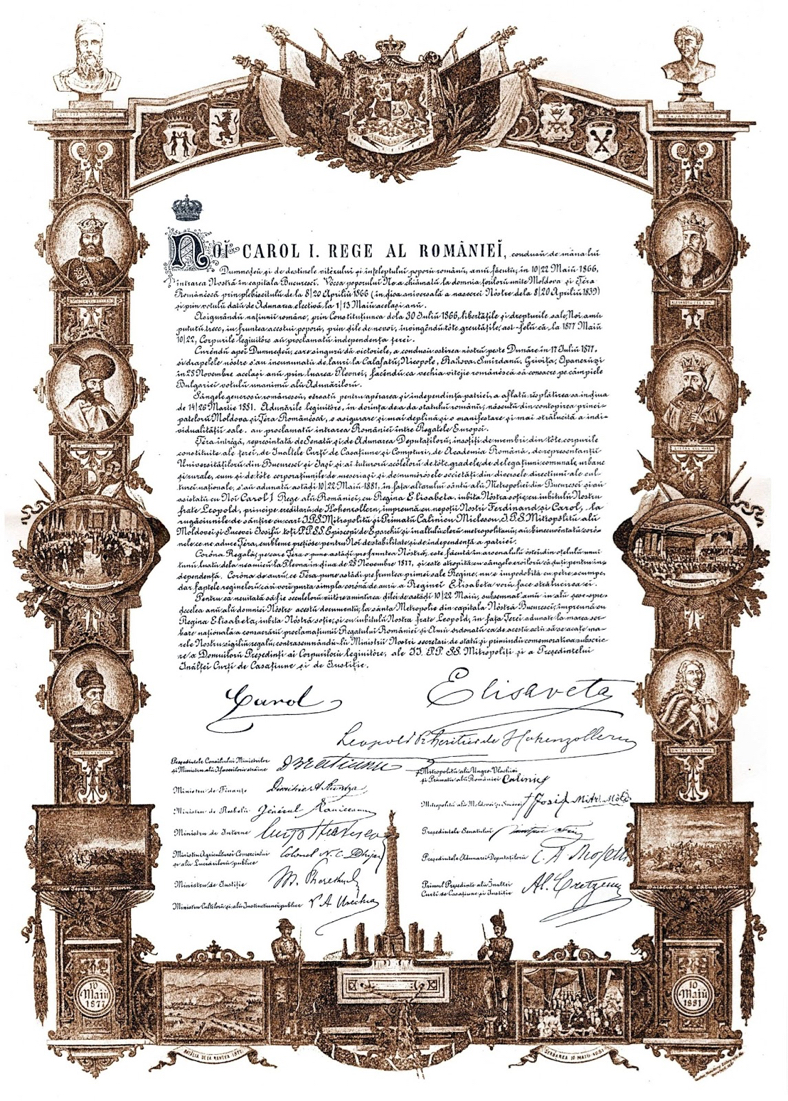 NOI CAROL I. REGE AL ROMÂNIEĬ, condusu de mâna lui
Dumneḑeŭ și de destinele vitézului și înțeleptului poporŭ românŭ, amŭ făcutŭ, în 10/22 Maiŭ 1866,
intrarea Nóstră în capitala Bucurescĭ. Vocea poporului Ne-a chiămatŭ la domnia țerilorŭ unite Moldova și Țéra
Românéscă prin plebiscitulŭ de la 8/20 Aprilie 1866 (în ḑiua aniversală a nascereĭ Nóstre de la 8/20 Apriliŭ 1839)
și prin votulŭ datŭ de Adunarea electivă la 1/13 Maiŭ același anŭ.
Asigurândŭ națiuniĭ române, prin Constituțiunea de la 30 Iulie 1866, libertățile și drepturile sale, Noĭ amŭ
pututŭ trece, în fruntea acestuĭ poporŭ, prin ḑile de nevoĭ, învingêndŭ tóte greutățile, ast-felŭ că, la 1877 Maiŭ
10/22, Corpurile legiuitóre aŭ proclamatŭ independența țereĭ.
Curêndŭ apoĭ Dumneḑeŭ, care singurŭ dă victoriele, a condusŭ óstirea nóstră peste Dunăre în 17 Iuliŭ 1877,
și drapelele nóstre s'aŭ încununatŭ de laurĭ la Calafatŭ, Nicopole, Rahova, Smîrdanŭ, Grivița, Opanezŭ și
în 28 Novembre același anŭ prin luarea Plevneĭ, făcêndŭ ca vechia vitejie românéscă să consacre pe câmpiele
Bulgarieĭ votulŭ unanimŭ alŭ Adunărilorŭ.
Sângele generosŭ românescŭ, vĕrsatŭ pentru apĕrarea și independența patrieĭ, a aflatŭ resplătirea sa în ḑiua
de 14/26 Martie 1881. Adunările legiuitóre, în dorința de a da statuluĭ românŭ, născutŭ din contopirea princi-
patelorŭ Moldova și Țéra Românéscă, o asigurare și mai deplină și o manifestare și mai strălucită a indi-
vidualitățiĭ sale, aŭ proclamatŭ intrarea Românieĭ între Regatele Europeĭ.
Țéra întrégă, representată de Senatŭ și de Adunarea Deputațilorŭ, însoțiți de membri din tóte corpurile
constituite ale țereĭ, de Înaltele Curțĭ de Casațiune și Compturĭ, de Academia Română, de representanțiĭ
Universitățilorŭ din Bucurescĭ și Iașĭ și aĭ tuturorŭ scólelorŭ de tóte gradele, de delegațiunĭ comunale, urbane
și rurale, cum și de tóte corporațiunile de meseriașĭ și de numerósele societățĭ din diversele direcțiunĭ ale cul-
tureĭ naționale, s'aŭ adunatŭ astăḑĭ 10/22 Maiŭ 1881, în fața altaruluĭ sântŭ alŭ Metropoleĭ din Bucurescĭ și aŭ
asistatŭ cu Noĭ Carol I Rege alŭ Românieĭ, cu Regina Elisabeta, iubita Nóstra soție, cu iubitulŭ Nostru
frate Leopold, principe ereditarŭ de Hohenzollern, împreună cu nepoțiĭ Nostri Ferdinand și Carol, la
rugăciunile de sânțire cu carĭ I.P.S. Mitropolitŭ și Primatŭ Calinicŭ Miclescu, I.P.S. Mitropolitŭ alŭ
Moldoveĭ și Suceveĭ Iosifŭ, toțĭ P.P.S.S. Episcopĭ de Eparchiĭ și înaltulŭ clerŭ metropolitanŭ, aŭ binecuvântatŭ coró-
nele ce ne aduce Țéra, embleme prețióse pentru Noĭ de stabilitate și de independență a patrieĭ.
Coróna Regală, pe care Țéra o pune astăḑĭ pe fruntea Nóstră, este făcută în arsenalulŭ óstireĭ din oțelulŭ unuĭ
tunŭ, luatŭ de la neamicĭ la Plevna în ḑiua de 28 Novembre 1877, și este stropită cu sângele eroilorŭ căduțĭ pentru in-
dependență. Coróna de aurŭ, ce Țéra pune astăḑĭ pe fruntea primeĭ sale Regine, nu e împodobită cu petre scumpe,
dar faptele reginelorŭ, cari vorŭ purta simpla coronă de aurŭ a Regineĭ Elisabeta voru face strălucirea eĭ.
Pentru ca neuitată să fie secolelorŭ viitóre amintirea ḑileĭ de astăḑĭ 10/22 Maiŭ, subsemnatŭ amŭ în alŭ șese-spre-
ḑecelea anŭ alŭ domnieĭ Nóstre acestŭ documentŭ, la sânta Metropolie din capitala Nóstră Bucurescĭ, împreună cu
Regina Elisabeta, iubita Nóstră soție, și cu iubitulŭ Nostru frate Leopold, în fața Țereĭ adunate la marea sĕr-
bare națională a consacrăriĭ proclamațiuniĭ Regatuluĭ Românieĭ și Amŭ ordonatŭ ca de acestŭ actŭ să se anine ma-
rele Nostru sigiliŭ regalŭ, contrasemnândŭ-lŭ Miniștriĭ Nostri secretarĭ de statŭ, și priimindŭ comemorativa subscri-
re a Domnilorŭ Președințĭ aĭ Corpurilorŭ legiuitóre, ale II. PP. SS. Mitropolițĭ și a Președinteluĭ
Înalteĭ Curțĭ de Casațiune și de Justiție.
Carol
Elisaveta
Leopold Pr. Heritier de Hohenzollern
Președintele Consiliului Miniștrilorŭ
și Ministru alŭ Afacerilorŭ străine
Brătianu
Metropolitŭ alŭ Ungro-Vlachieĭ
și Primatŭ alŭ Românieĭ
Calinic
Ministru de Finanțe
Metropolitŭ alŭ Moldoveĭ și Suceveĭ
† Josif Mitr. Mold.
Ministru de Resbelŭ
General Slaniceanu
Ministru de Interne
Președintele Senatuluĭ
Ministru Agricultureĭ Comerciuluĭ
și alŭ Lucrărilorŭ publice
Colonel N. C. Dabija
Președintele Adunareĭ Deputațilorŭ
Ministru de Justiție
M. Pherekyd
Primul Președinte alŭ Înalteĭ
Curțĭ de Casațiune și Justiție
Al. Crețescu
Ministru Cultilorŭ și alŭ Instrucțiuniĭ publice
V. A. Urechia
10
Maiŭ
1877
10
Maiŭ
1881